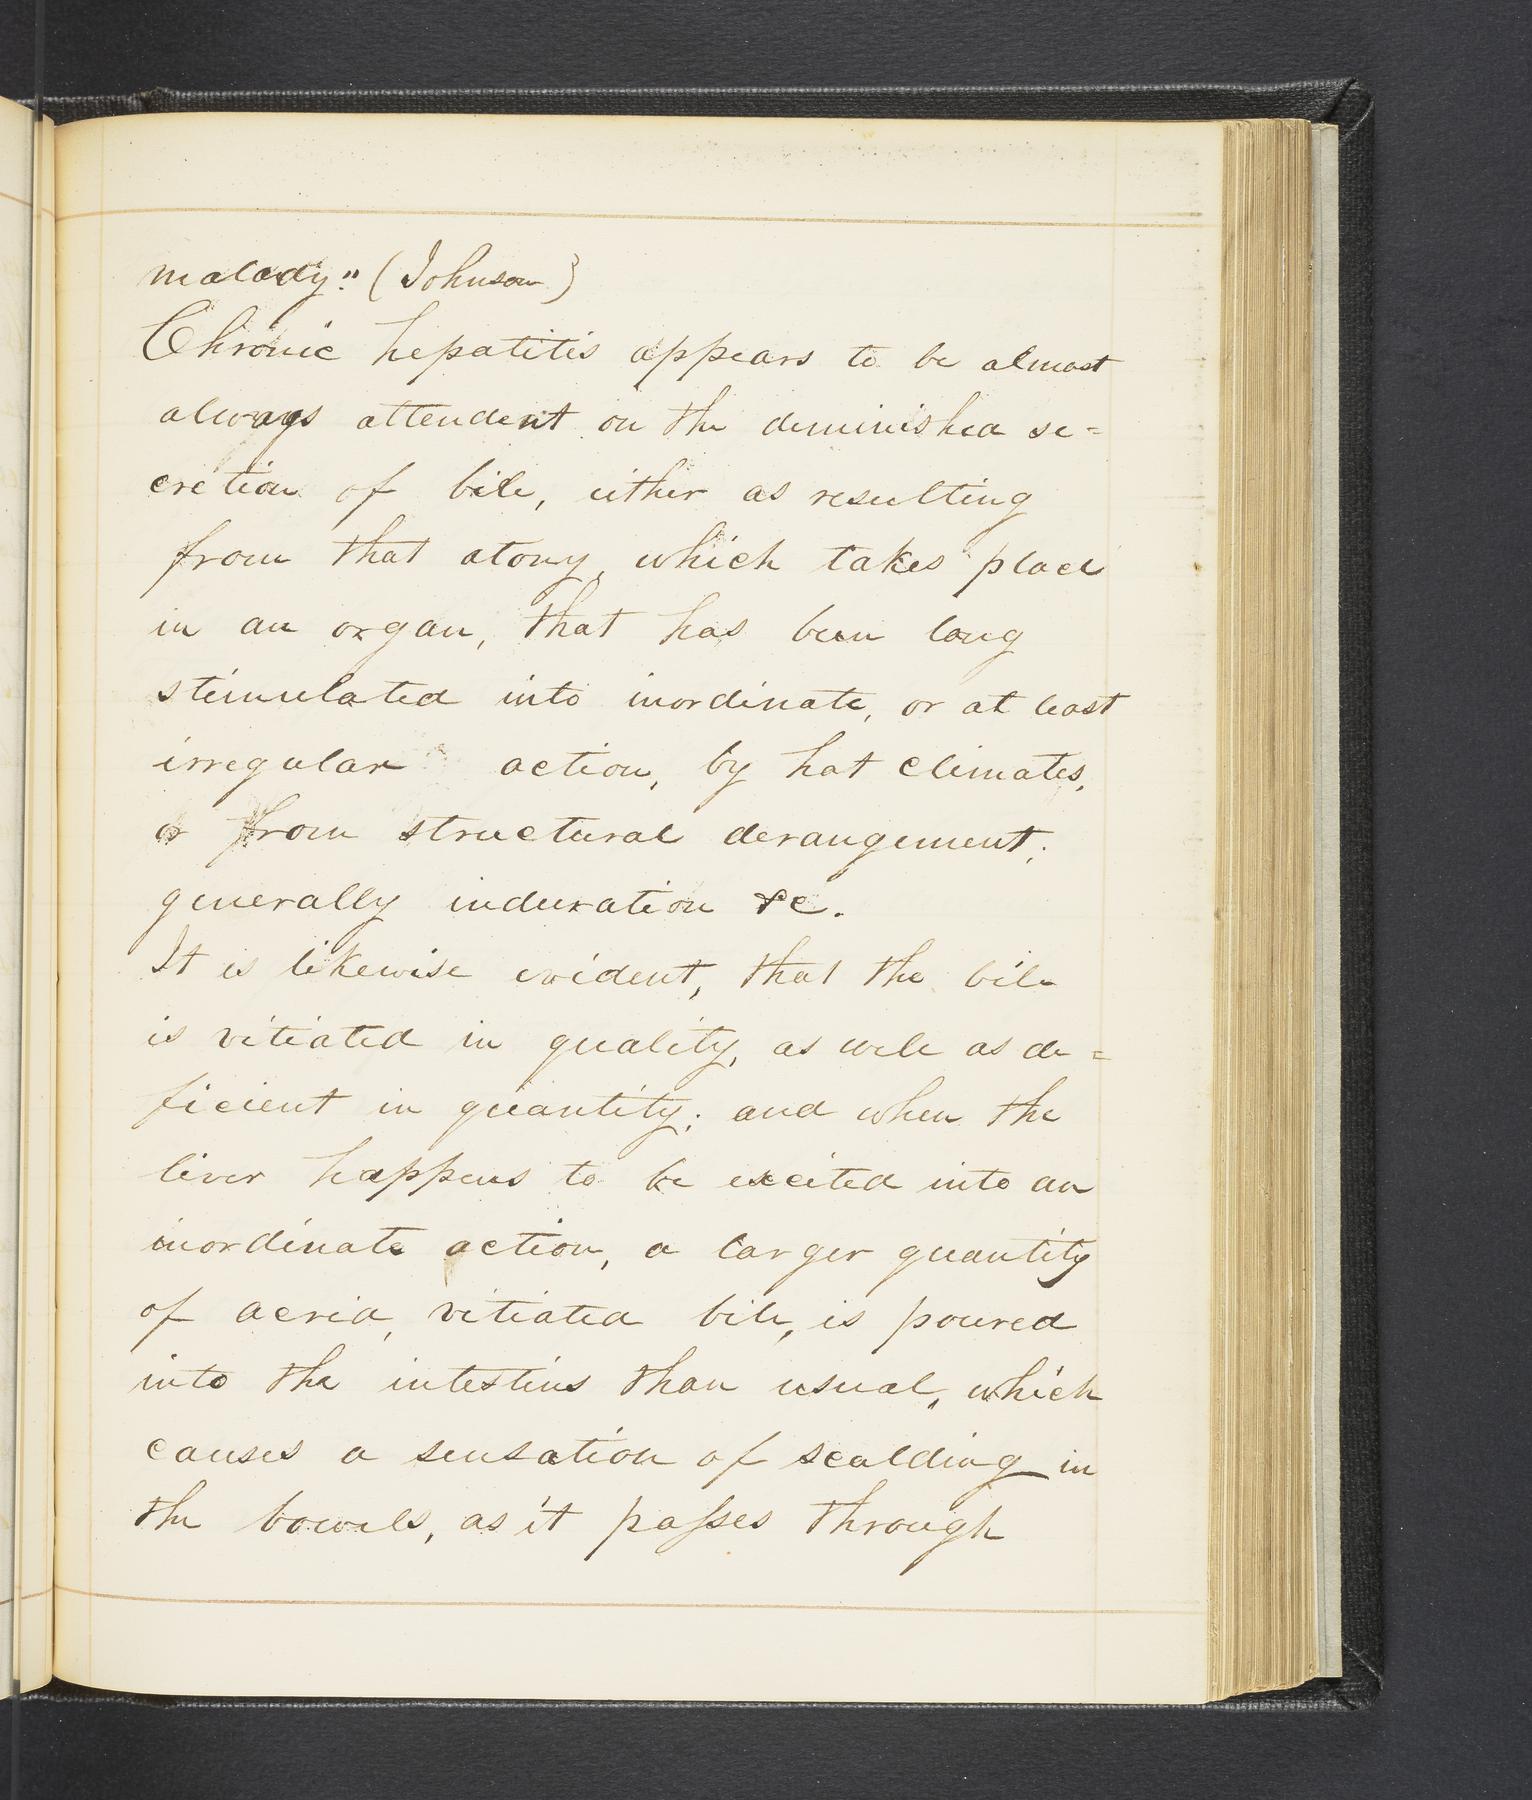 malady." (Johnson)
Chronic hepatitis appears to be almost
always attendent on the deminished se=
cretion of bile, either as resulting
from that atony, which takes place
in an organ, that has been long
stimulated into inordinate, or at least
irregular action, by hot climates,
or from structural derangement;
generally induration &c.
It is likewise evident, that the bile
is vitiated in quality, as well as de=
ficient in quantity; and when the
liver happens to be excited into an
inordinate action, a larger quantity
of acrid, vitiated bile, is poured
into the intestins than usual, which
causes a sensation of scalding in
the bowels, as it passes through